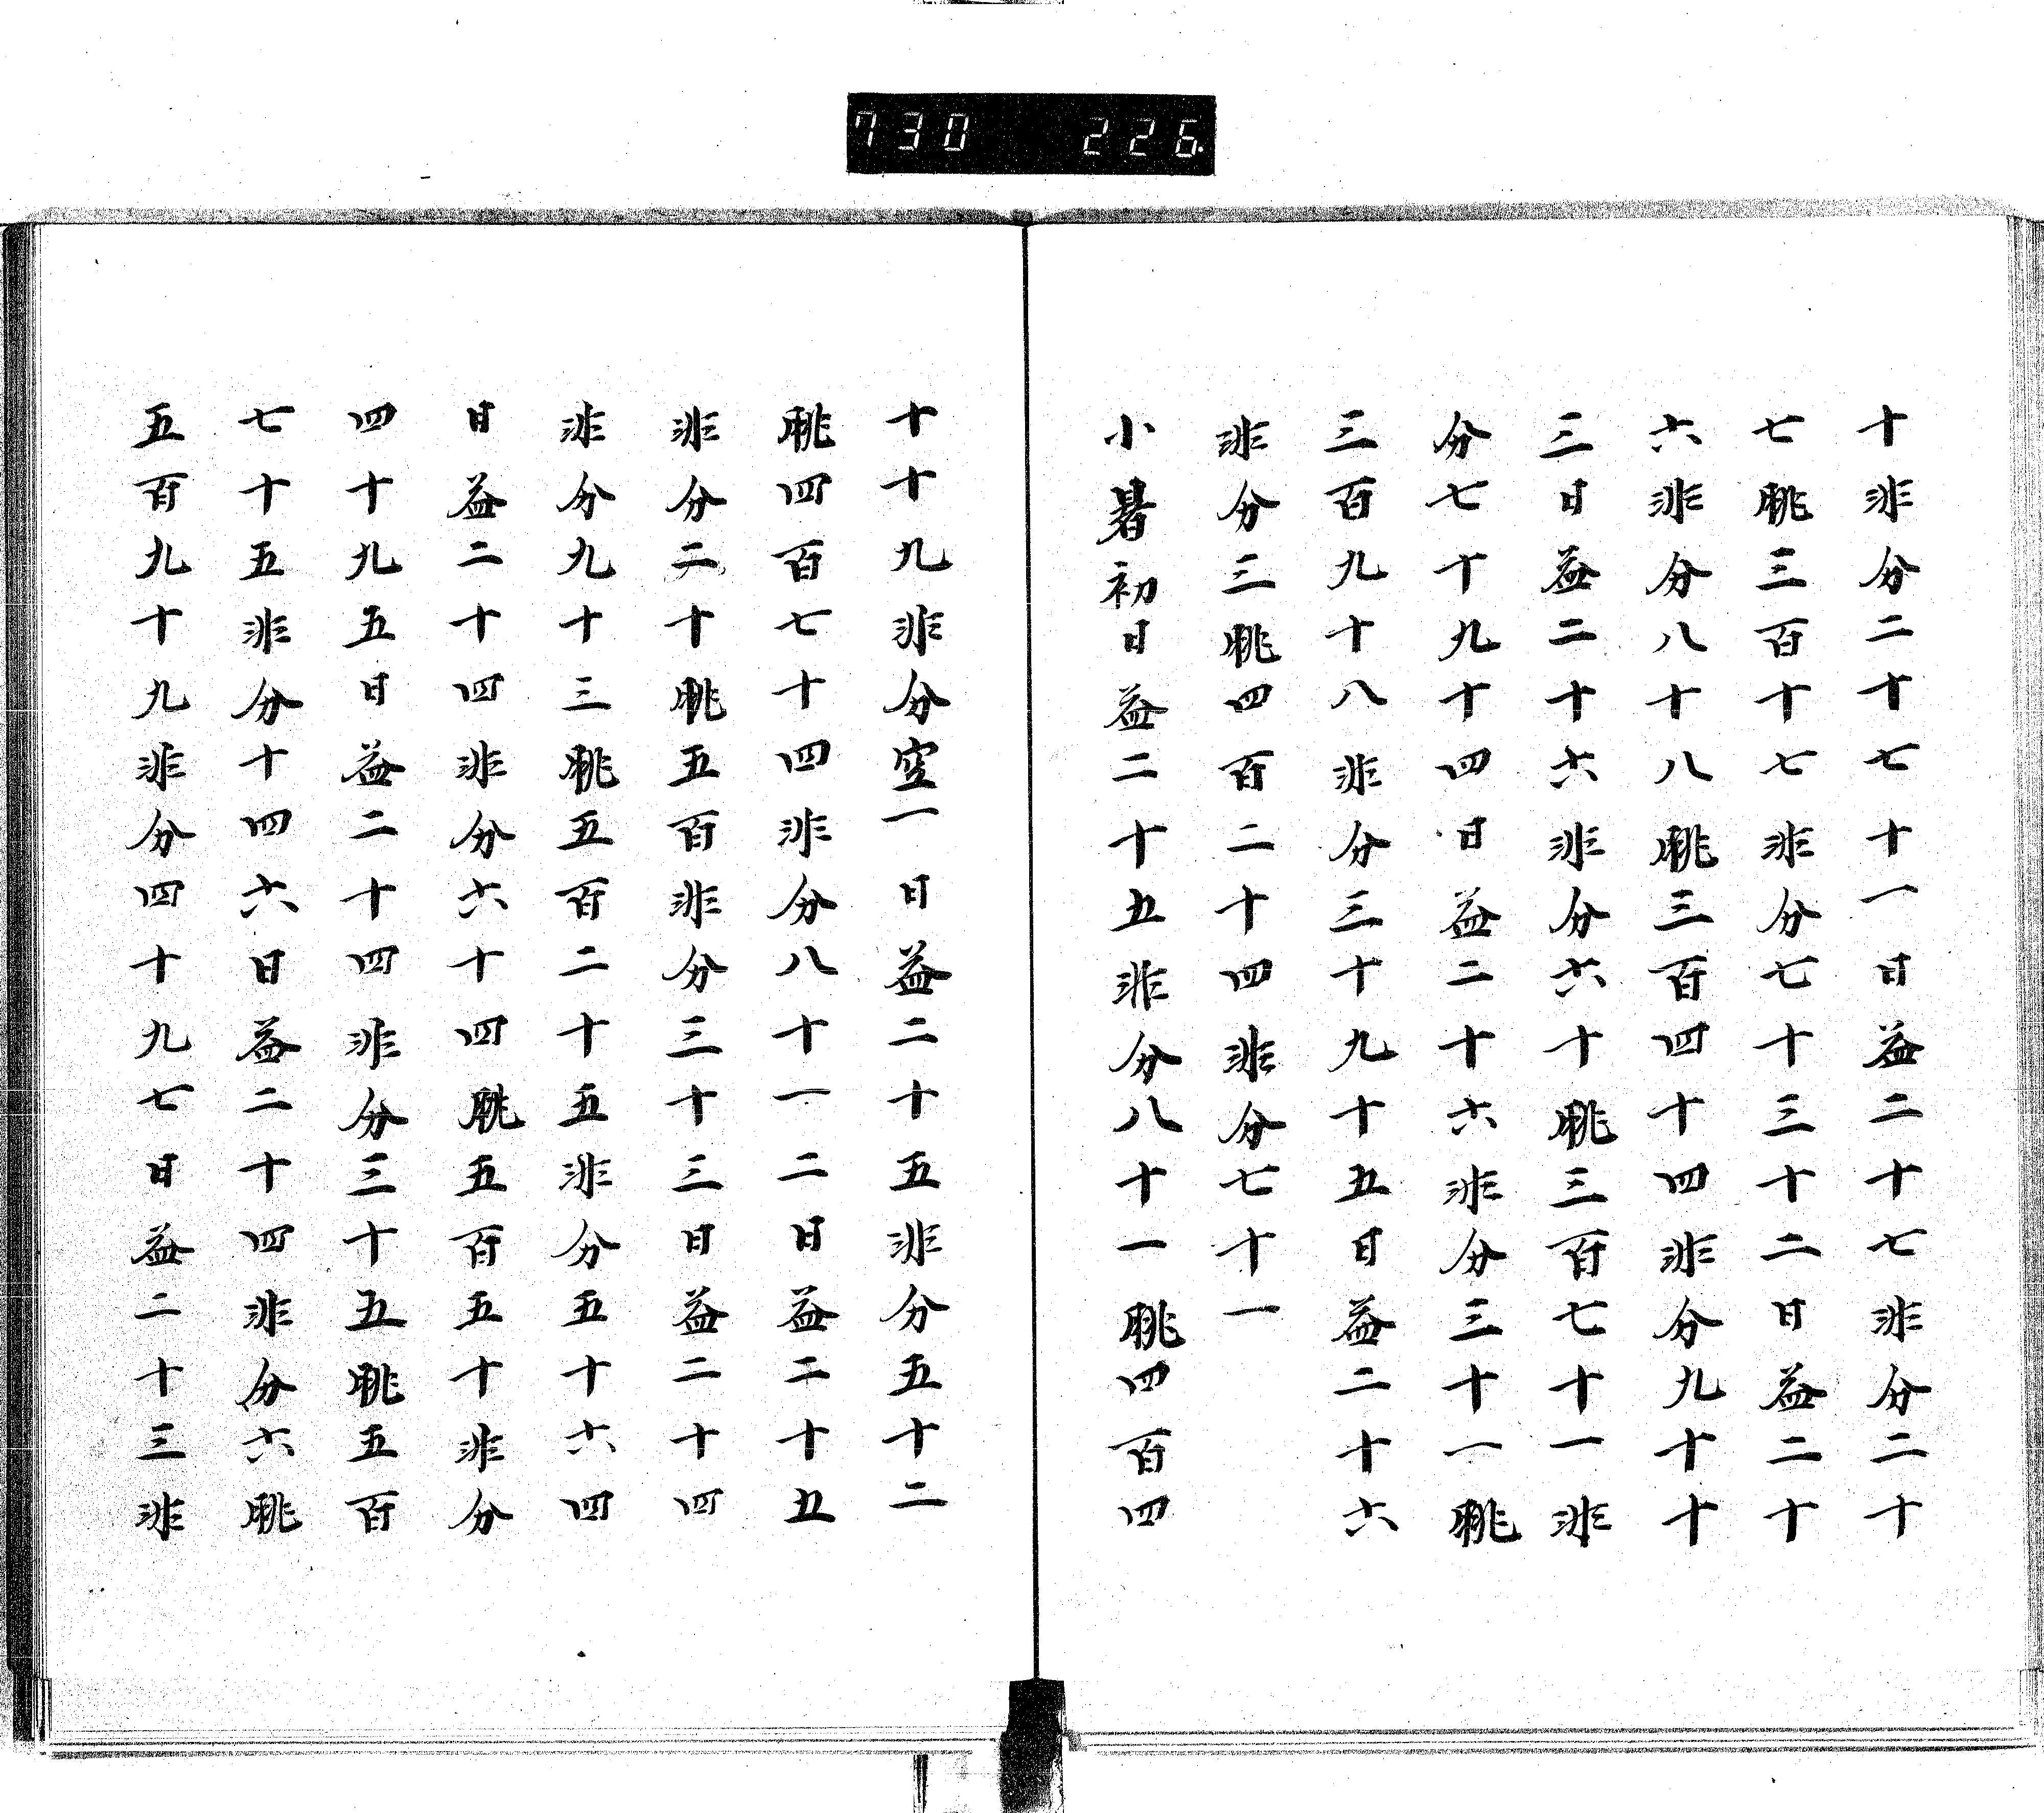 730 226.
十非分二十七十一日益二十七非分二十
七朓三百十七非分七十三十二日益二十
六非分八十八朓三百四十四非分九十十
三日益二十六非分六十朓三百七十一非
分七十九十四日益二十六非分三十一朓
三百九十八非分三十九十五日益二十六
非分三朓四百二十四非分七十一
小暑初日益二十五非分八十一朓四百四
十十九非分空一日益二十五非分五十二
朓四百七十四非分八十一二日益二十五
非分二十朓五百非分三十三日益二十四
非分九十三朓五百二十五非分五十六四
日益二十四非分六十四朓五百五十非分
四十九五日益二十四非分三十五朓五百
七十五非分十四六日益二十四非分六朓
五百九十九非分四十九七日益二十三非